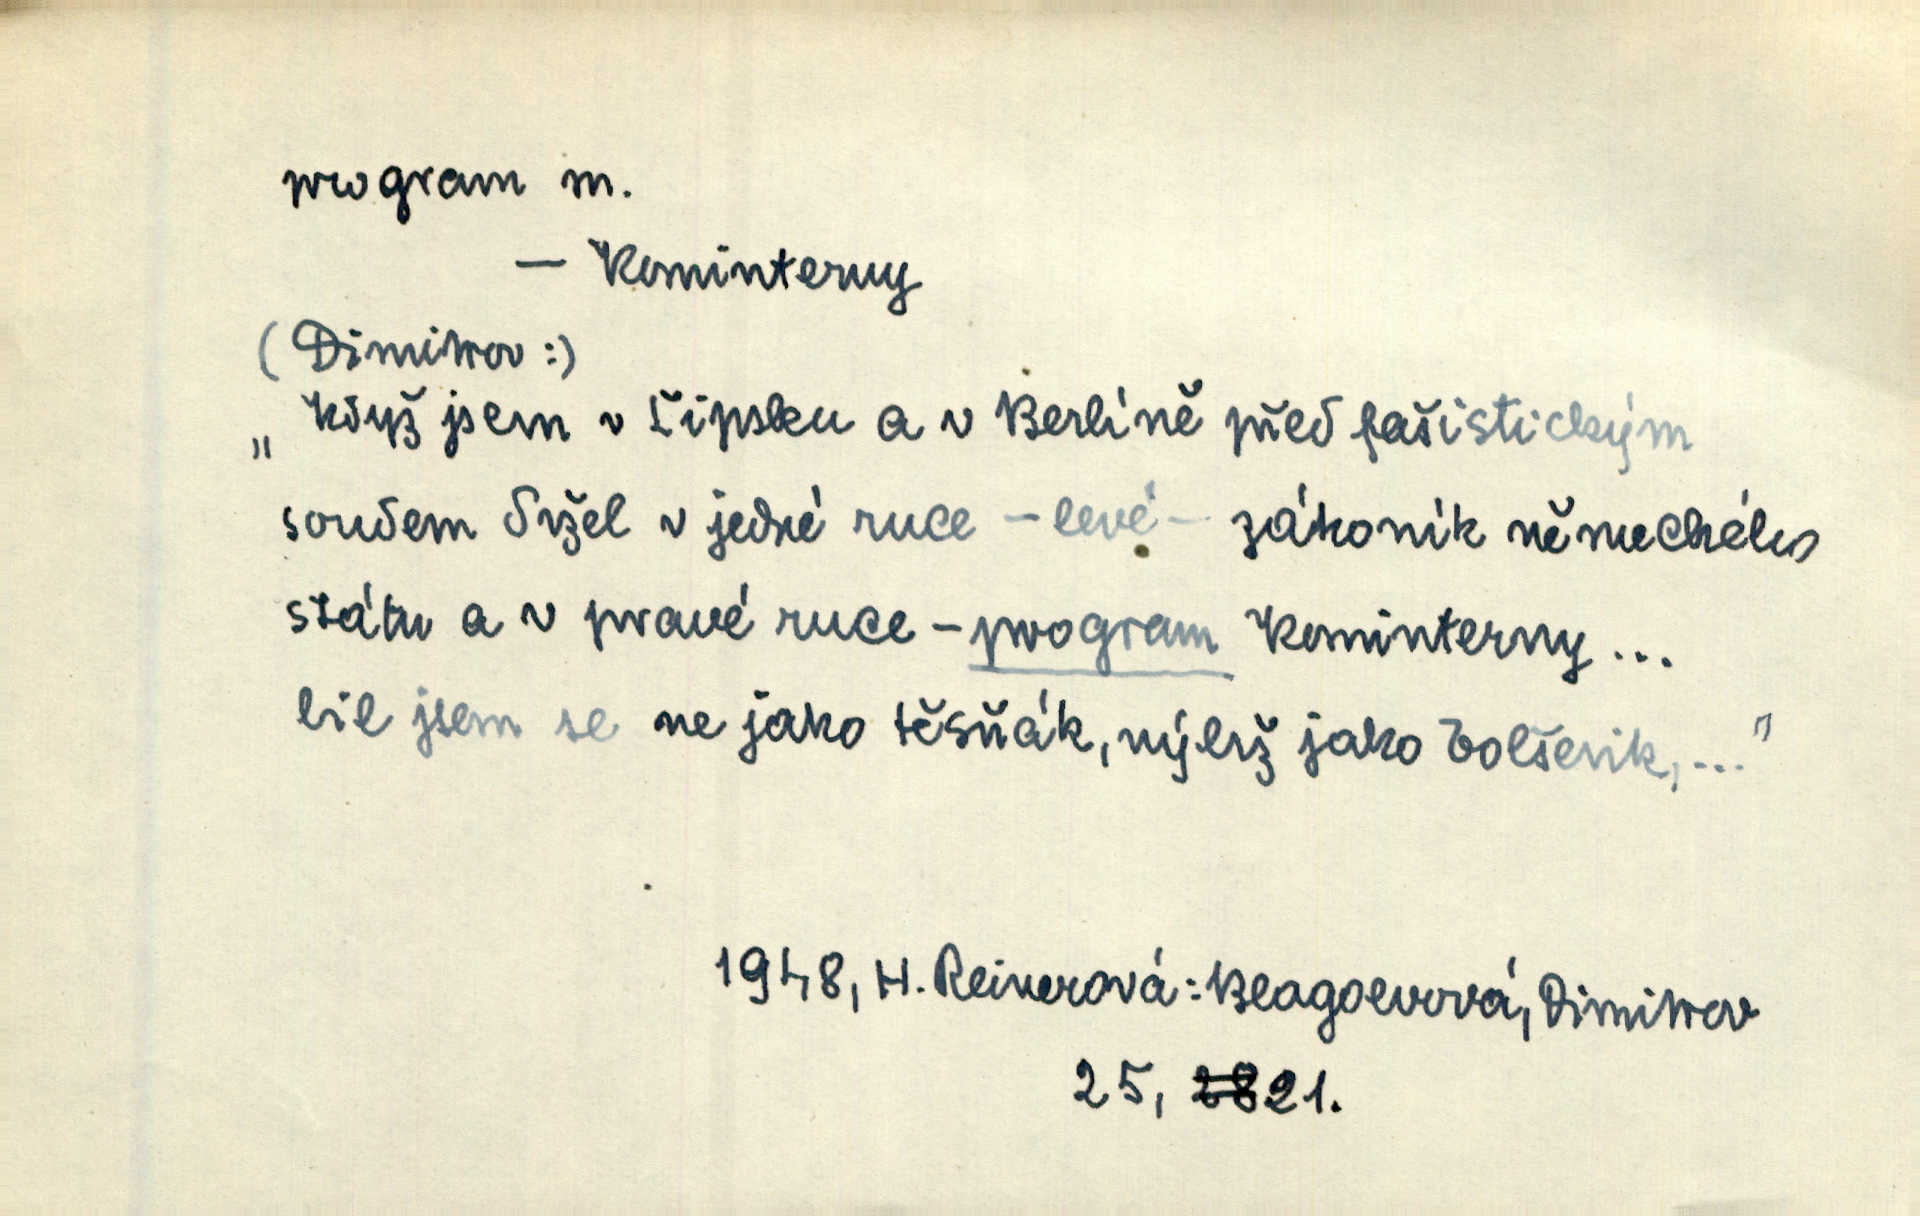 program m.
— Kominterny
(Dimitrov:)
„Když jsem v Lipsku a v Berlíně před fašistickým
soudem držel v jedné ruce – levé – zákoník německého
státu a v pravé ruce – program Kominterny ...
bil jsem se ne jako těsňák, nýbrž jako bolševik, ..."
1948, H. Reinerová: Blagoevová, Dimitrov
25, 28 21.